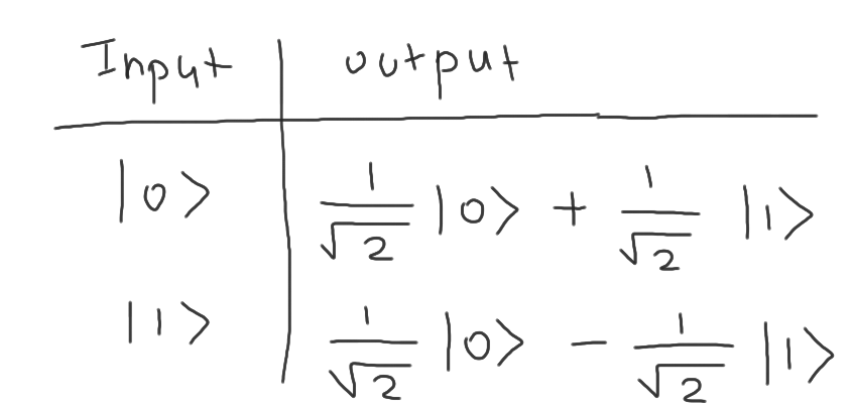 Input | output
|0> | 1/√2 |0> + 1/√2 |1>
|1> | 1/√2 |0> - 1/√2 |1>